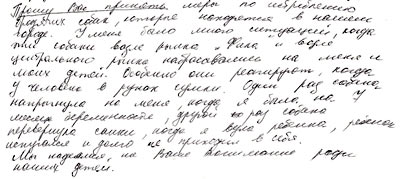 Прошу Вас принять меры по истреблению
бродячих собак, которые находятся в нашем
городе. У меня было много ситуаций, когда
эти собаки возле рынка "Фика" и возле
центрального рынка набрасывались на меня и
моих детей. Особенно они реагируют, когда
у человека в руках сумки. Один раз собака
напрыгнула на меня, когда я была на
месяце беременности, другой раз собака
перевернула санки, когда я везла ребенка, ребенок
испугался и долго не приходил в себя.
Мы надеемся, на Ваше внимание ради
наших детей.